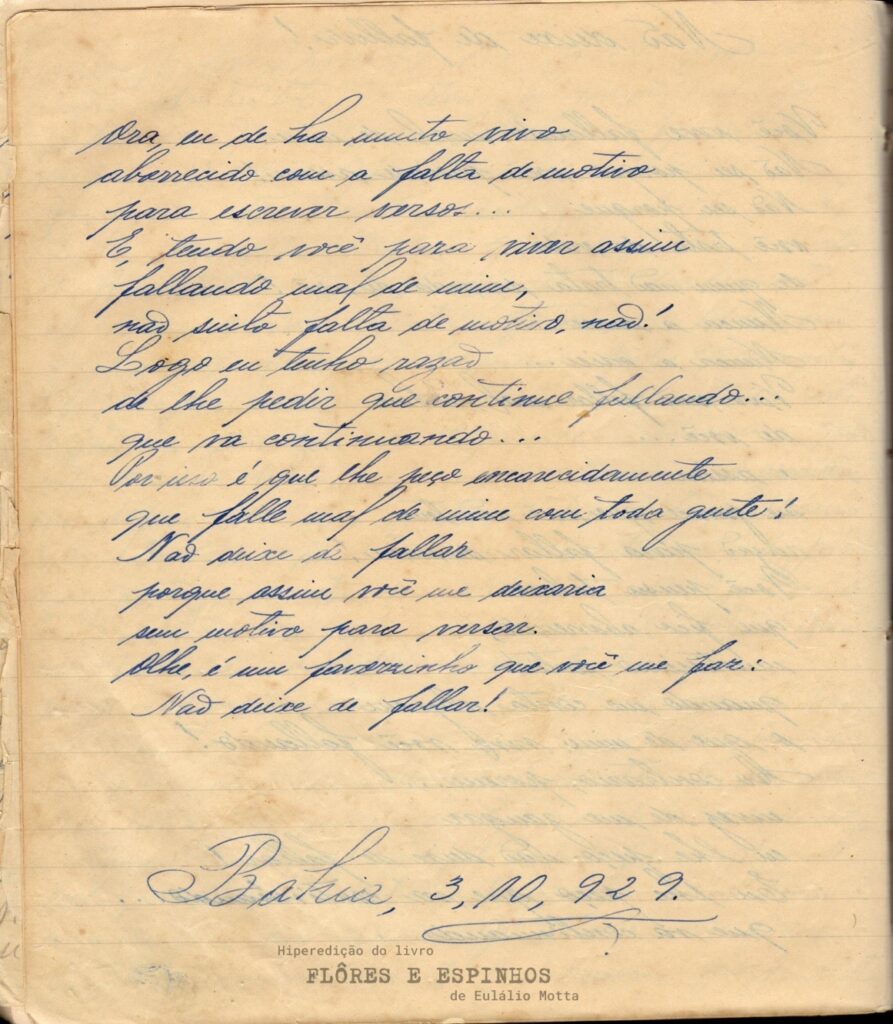 Ora, eu de ha muito vivo
aborrecido com a falta de motivo
para escrever versos...
E, tendo você para viver assim
fallando mal de mim,
naõ sinto falta de motivo, naõ!
Logo eu tenho razaõ
de lhe pedir que continue fallando...
que va continuando...
Por isso é que lhe peço encarecidamente
que falle mal de mim com toda gente!
Naõ deixe de fallar
porque assim você me deixaria
sem motivo para versar.
Olhe, é um favorzinho que você me faz:
Naõ deixe de fallar!
Bahia, 3, 10, 929.
Hiperedição do livro
FLÔRES E ESPINHOS
de Eulálio Motta